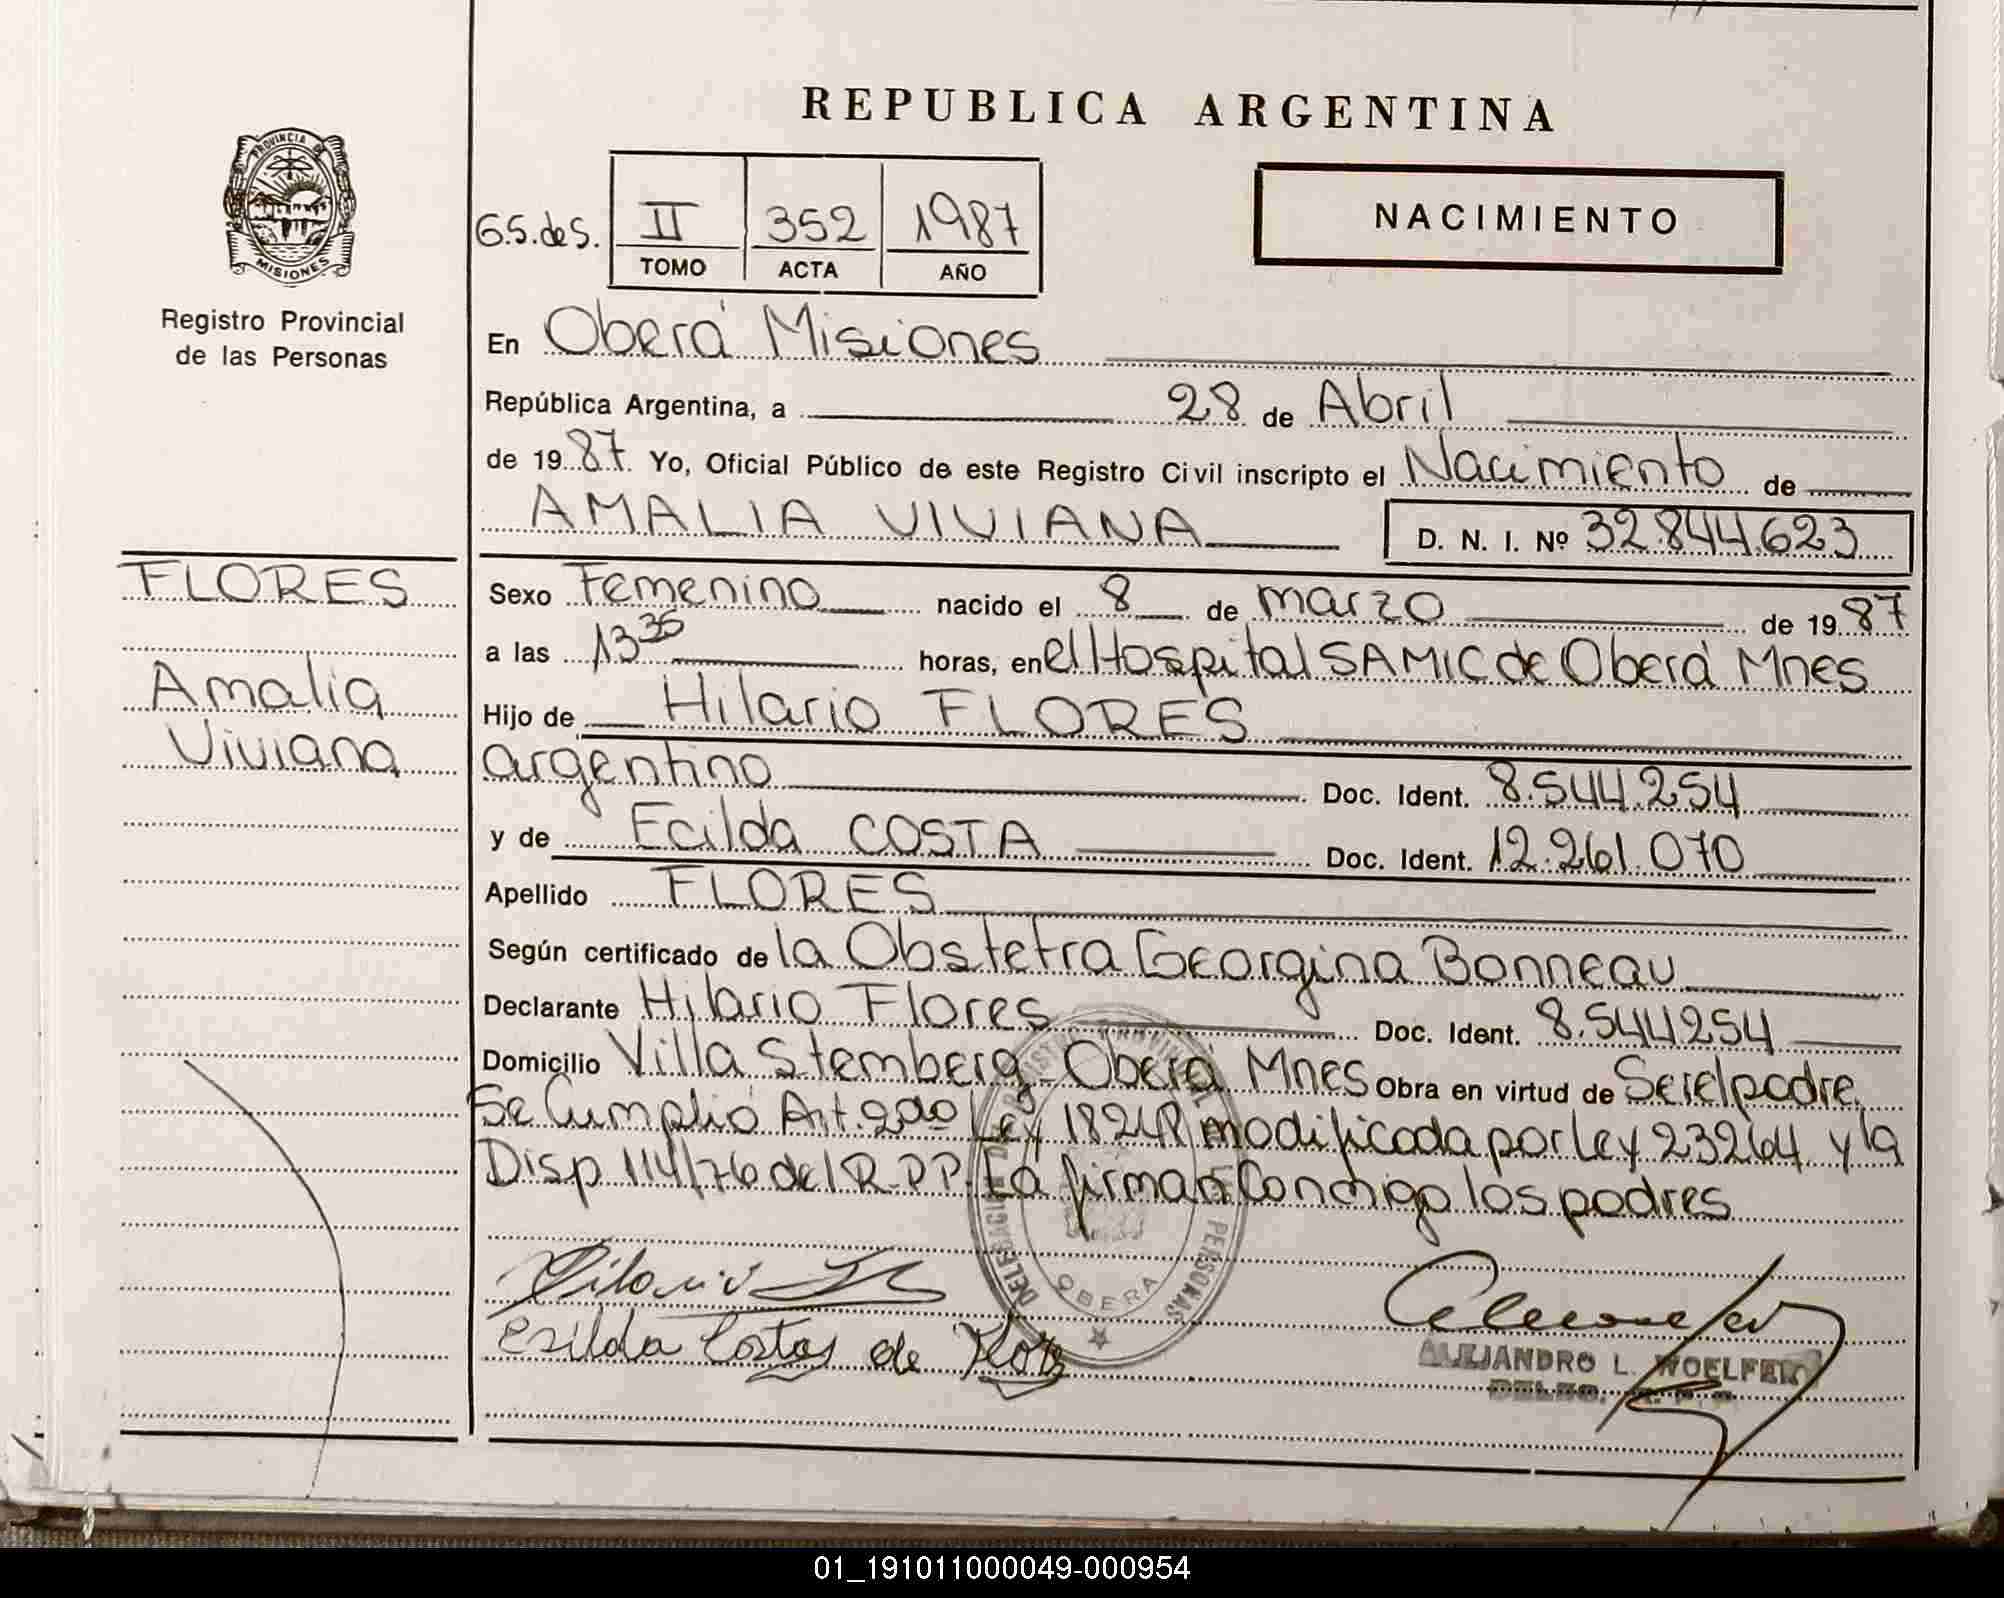 REPUBLICA ARGENTINA
PROVINCIA DE
MISIONES
Registro Provincial
de las Personas
G.S. de S. II 352 1987
TOMO ACTA AÑO
NACIMIENTO
En Oberá Misiones
República Argentina, a 28 de Abril
de 1987. Yo, Oficial Público de este Registro Civil inscripto el Nacimiento de
AMALIA VIVIANA D. N. I. Nº 32.844.623
FLORES
Amalia
Viviana
Sexo Femenino nacido el 8 de marzo de 1987
a las 13 35 horas, en el Hospital SAMIC de Oberá Mnes
Hijo de Hilario FLORES
argentino Doc. Ident. 8.544.254
y de Ecilda COSTA Doc. Ident. 12.261.070
Apellido FLORES
Según certificado de la Obstetra Georgina Bonneau
Declarante Hilario Flores Doc. Ident. 8.544254
Domicilio Villa Stemberg - Oberá Mnes Obra en virtud de Ser el padre.
Se Cumplió Art. 2do Ley 18248 modificada por ley 23264 y la
Disp 114/76 del R.P.P. La firman Conmigo los padres
PERSONAS
OBERA
Costas de
ALEJANDRO L. WOELFERT
01_191011000049-000954